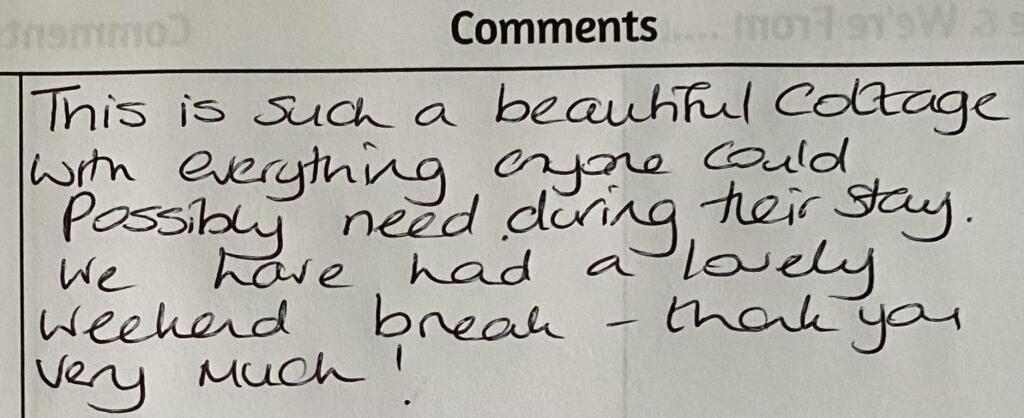 Comments
This is such a beautiful Cottage
with everything anyone could
Possibly need during their stay.
We have had a lovely
Weekend break – thank you
very much!